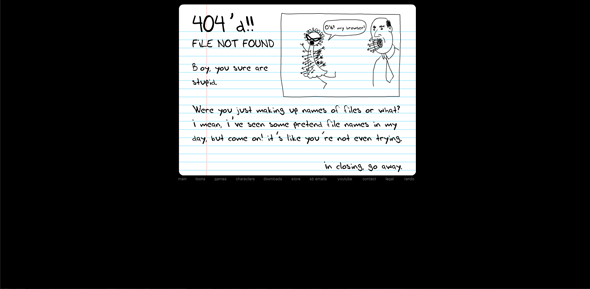 404'd!!
OH! my browser!
FiLE NOT FOUND
Boy, you sure are
stupid.
Were you just making up names of files or what?
i mean, i've seen some pretend file names in my
day, but come on! it's like you're not even trying.
in closing, go away.
main toons games characters downloads store sb emails youtube contact